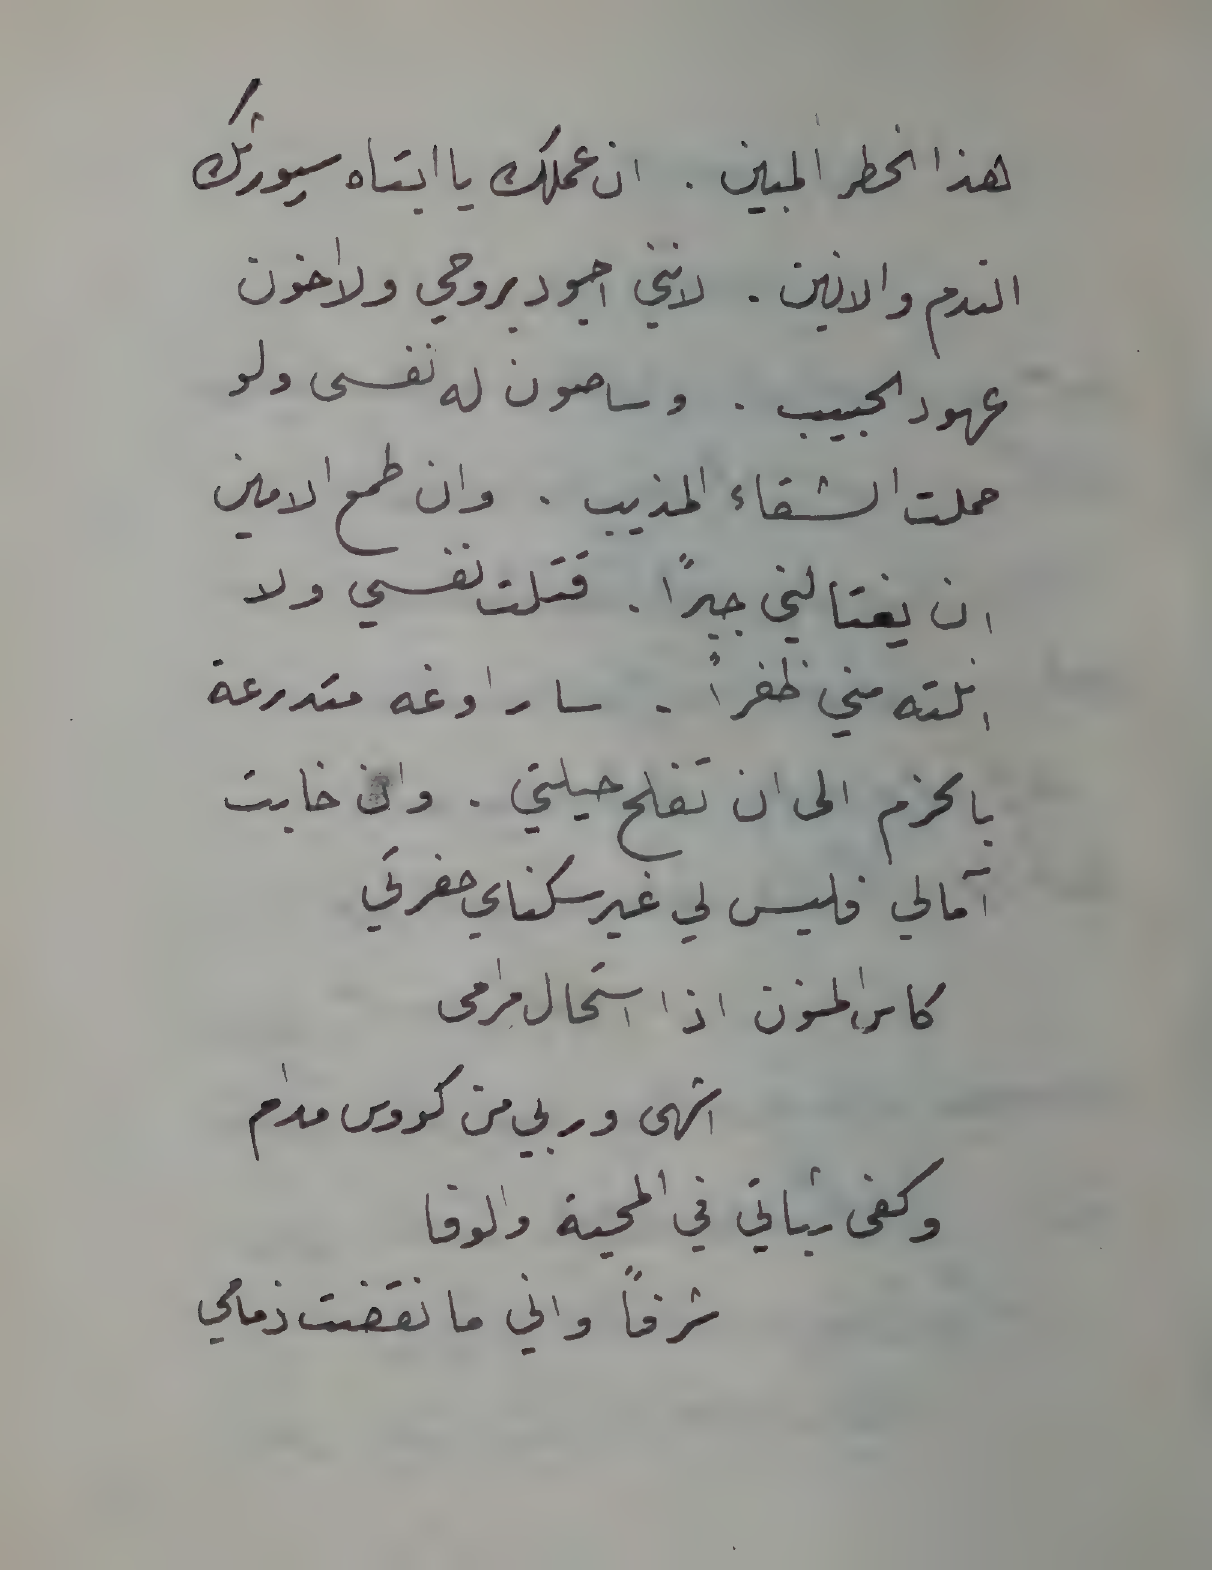 هذا الخطر المبين . ان عملك يا ابتاه سيورثك
الندم والانين . لانني اجود بروحي ولا اخون
عهود الحبيب . وساصون له نفسى ولو
حملت الشقاء المذيب . وان طمع الامين
ان يغتالني جبرًا . قتلت نفسي ولا
انلته مني ظفراً . ساراوغه متدرعة
بالحزم الى ان تفلح حيلتي . وان خابت
آمالي فليس لي غير سكناي حفرتي
كاس المنون اذا استحال مرامى
اشهى وربي من كووس مدام
وكفى ثباتي في المحبة والوفا
شرفاً واني ما نقضت ذمامي